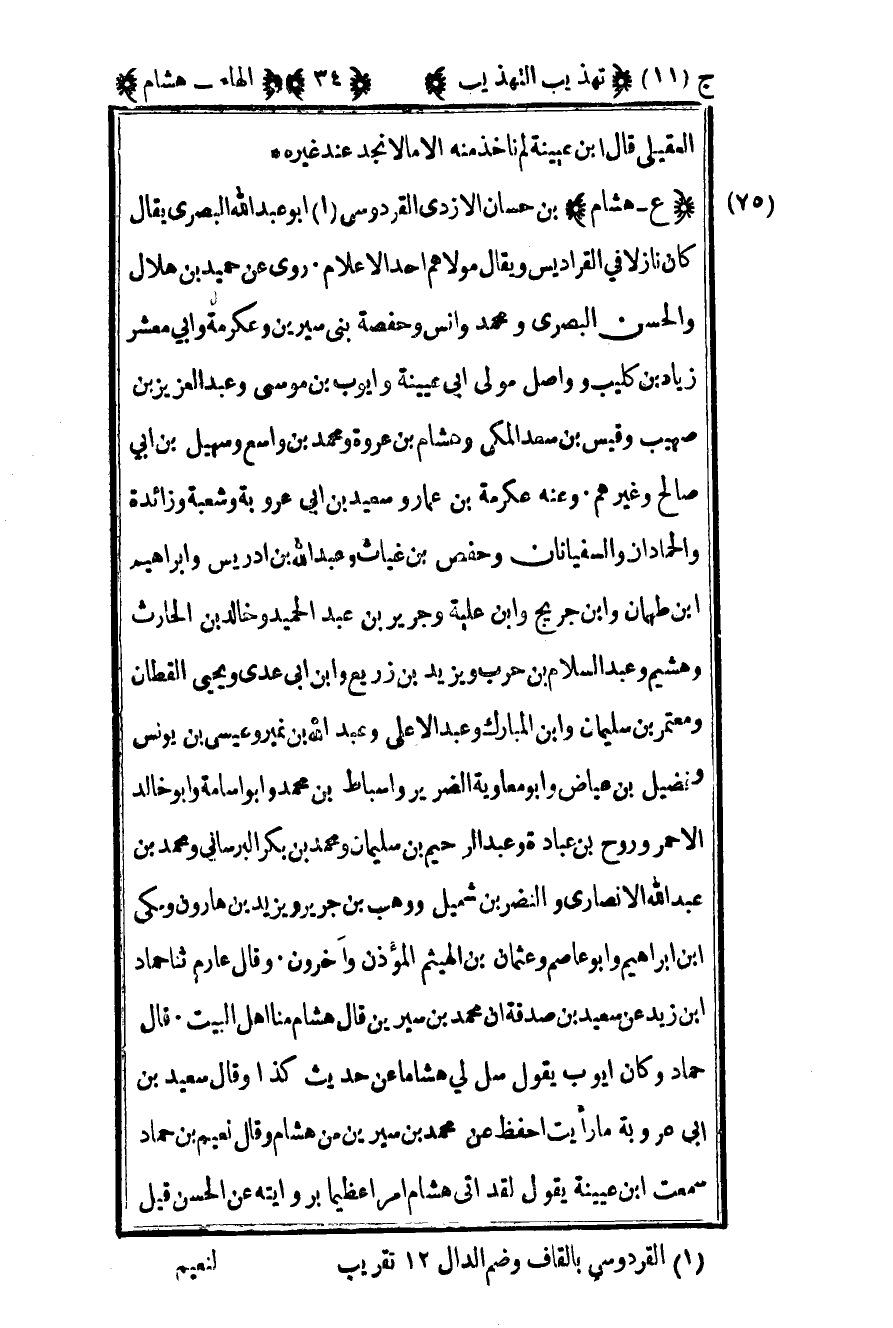 ج (١١) ﴿ تهذيب التهذيب ﴾ ﴿ ٣٤ ﴾ ﴿ الهاء ـ هشام ﴾
العقيلى قال ابن عيينة لم ناخذ منه الا مالا نجد عند غيره *
(٧٥) ﴿ ع ـ هشام ﴾ بن حسان الازدى القردوسى (١) ابو عبدالله البصرى يقال
كان نازلا في القراديس ويقال مولاهم احد الاعلام . روى عن حميد بن هلال
والحسن البصرى و محمد وانس وحفصة بنى سيرين وعكرمة وابي معشر
زياد بن كليب و واصل مولى ابى عيينة و ايوب بن موسى وعبد العزيز بن
صهيب وقيس بن سعد المكي وهشام بن عروة ومحمد بن واسع وسهيل بن ابي
صالح وغيرهم . وعنه عكرمة بن عمار و سعيد بن ابى عروبة وشعبة وزائدة
والحمادان والسفيانان وحفص بن غياث وعبدالله بن ادريس وابراهيم
ابن طهمان وابن جريج وابن علية وجرير بن عبد الحميد وخالد بن الحارث
وهشيم وعبد السلام بن حرب ويزيد بن زريع وابن ابى عدى ويحيى القطان
ومعتمر بن سليمان وابن المبارك وعبد الاعلى وعبد الله بن نمير وعيسى بن يونس
وفضيل بن عياض وابو معاوية الضرير واسباط بن محمد وابو اسامة وابو خالد
الاحمر وروح بن عبادة وعبد الرحيم بن سليمان ومحمد بن بكر البرساني ومحمد بن
عبدالله الانصارى و النضر بن شميل ووهب بن جرير ويزيد بن هارون ومكى
ابن ابراهيم وابو عاصم وعثمان بن الهيثم المؤذن وآخرون . وقال عارم ثنا حماد
ابن زيد عن سعيد بن صدقة ان محمد بن سيرين قال هشام منا اهل البيت . قال
حماد وكان ايوب يقول سل لي هشاما عن حديث كذا وقال سعيد بن
ابى عروبة ما رأيت احفظ عن محمد بن سيرين من هشام وقال نعيم بن حماد
سمعت ابن عيينة يقول لقد اتى هشام امرا عظيما بروايته عن الحسن قيل
(١) القردوسي بالقاف وضم الدال ١٢ تقريب
لنعيم